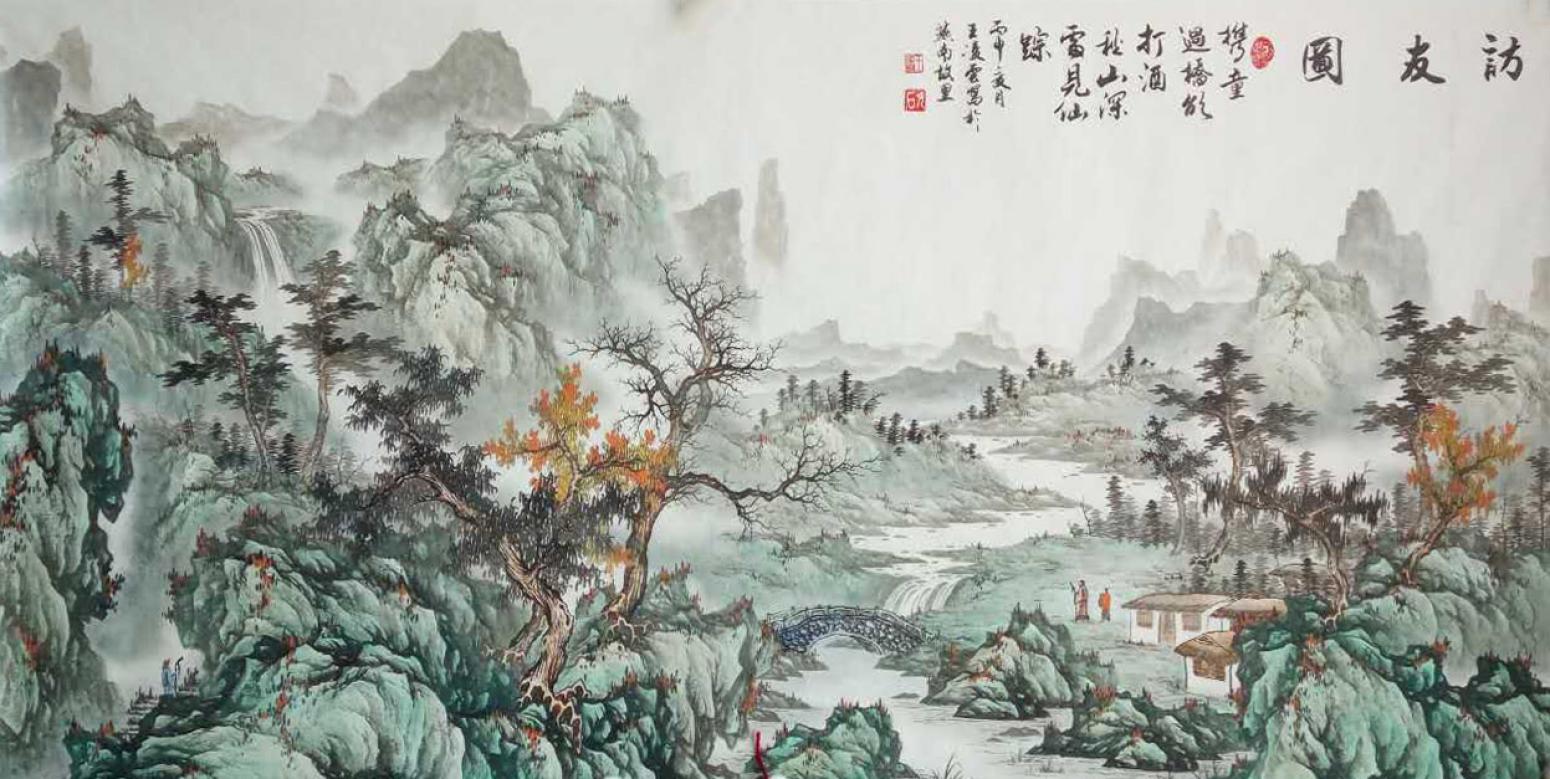 訪友圖
攜童
過橋欲
打酒
秋山深
雲見仙
踪
丙申夏月
王凌雲寫於
燕南故里